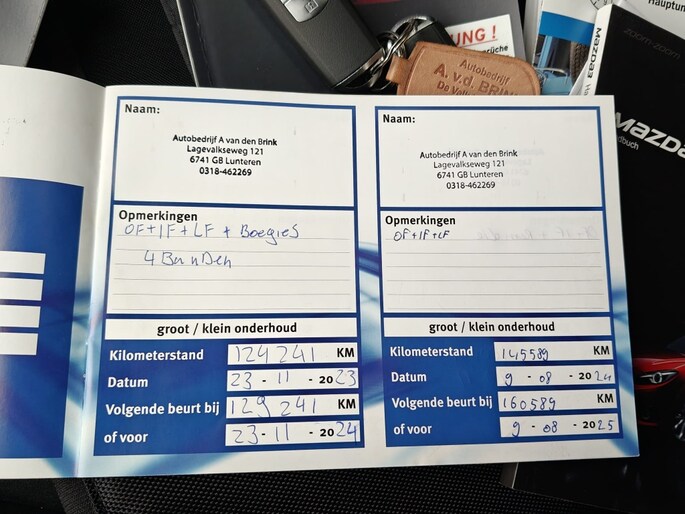 UNG !
rüche
Hauptun
zoom-zoom
MAZDA3
MAZDA
dbuch
Autobedrijf
A. v.d. BRINK
Naam:
Autobedrijf A van den Brink
Lagevalkseweg 121
6741 GB Lunteren
0318-462269
Opmerkingen
OF+IF+LF + Boegies
4 Banden
groot / klein onderhoud
Kilometerstand 124241 KM
Datum 23 - 11 - 2023
Volgende beurt bij 129241 KM
of voor 23 - 11 - 2024
Naam:
Autobedrijf A van den Brink
Lagevalkseweg 121
6741 GB Lunteren
0318-462269
Opmerkingen
OF+IF+LF
groot / klein onderhoud
Kilometerstand 145589 KM
Datum 9 - 08 - 2024
Volgende beurt bij 160589 KM
of voor 9 - 08 - 2025